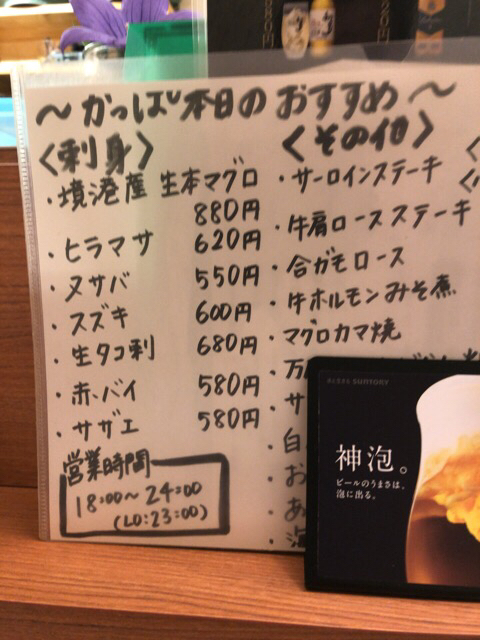 ～かっぱ 本日のおすすめ～
〈刺身〉
・境港産 生本マグロ
880円
・ヒラマサ 620円
・〆サバ 550円
・スズキ 600円
・生タコ刺 680円
・赤バイ 580円
・サザエ 580円
営業時間
18:00～24:00
(LO:23:00)
〈その他〉
・サーロインステーキ
・牛肩ロースステーキ
・合ガモロース
・牛ホルモンみそ煮
・マグロカマ焼
・万
・サ
・白
・お
・あ
SUNTORY
神泡。
ビールのうまさは、
泡に出る。